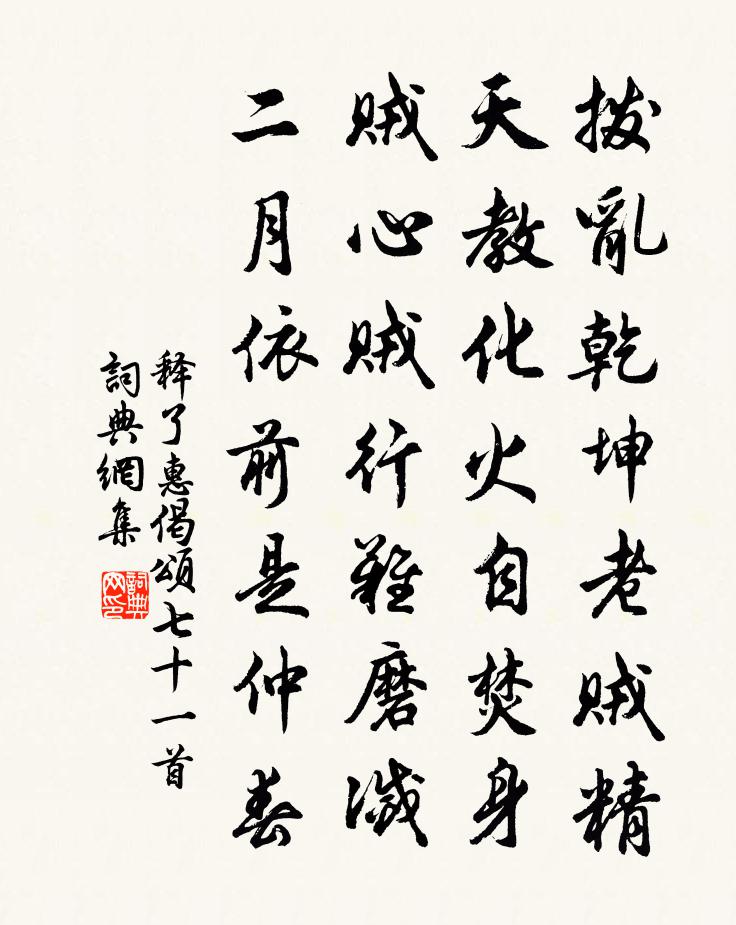 拨亂乾坤老贼精
天教化火自焚身
贼心贼行難磨滅
二月依前是仲春
释了惠偈頌七十一首
詞典網集
詞典网印